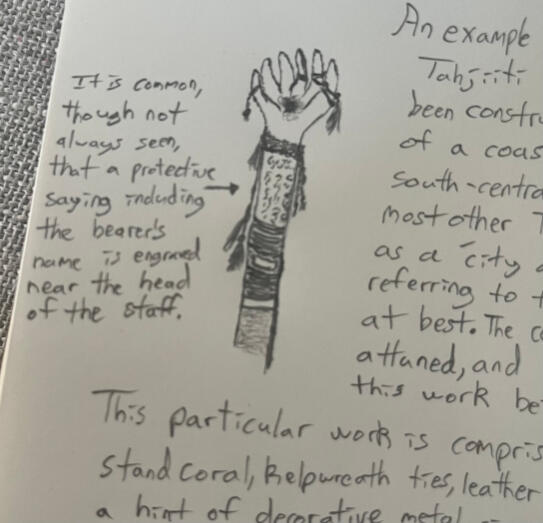 An example
Tahjiiti
been constru
of a coas
south-centra
most other T
as a city a
referring to t
at best. The c
attuned, and
this work be
It is common,
though not
always seen,
that a protective
saying including
the bearer's
name is engraved
near the head
of the staff.
This particular work is compris
stand coral, kelpwreath ties, leather
a hint of decorative metal